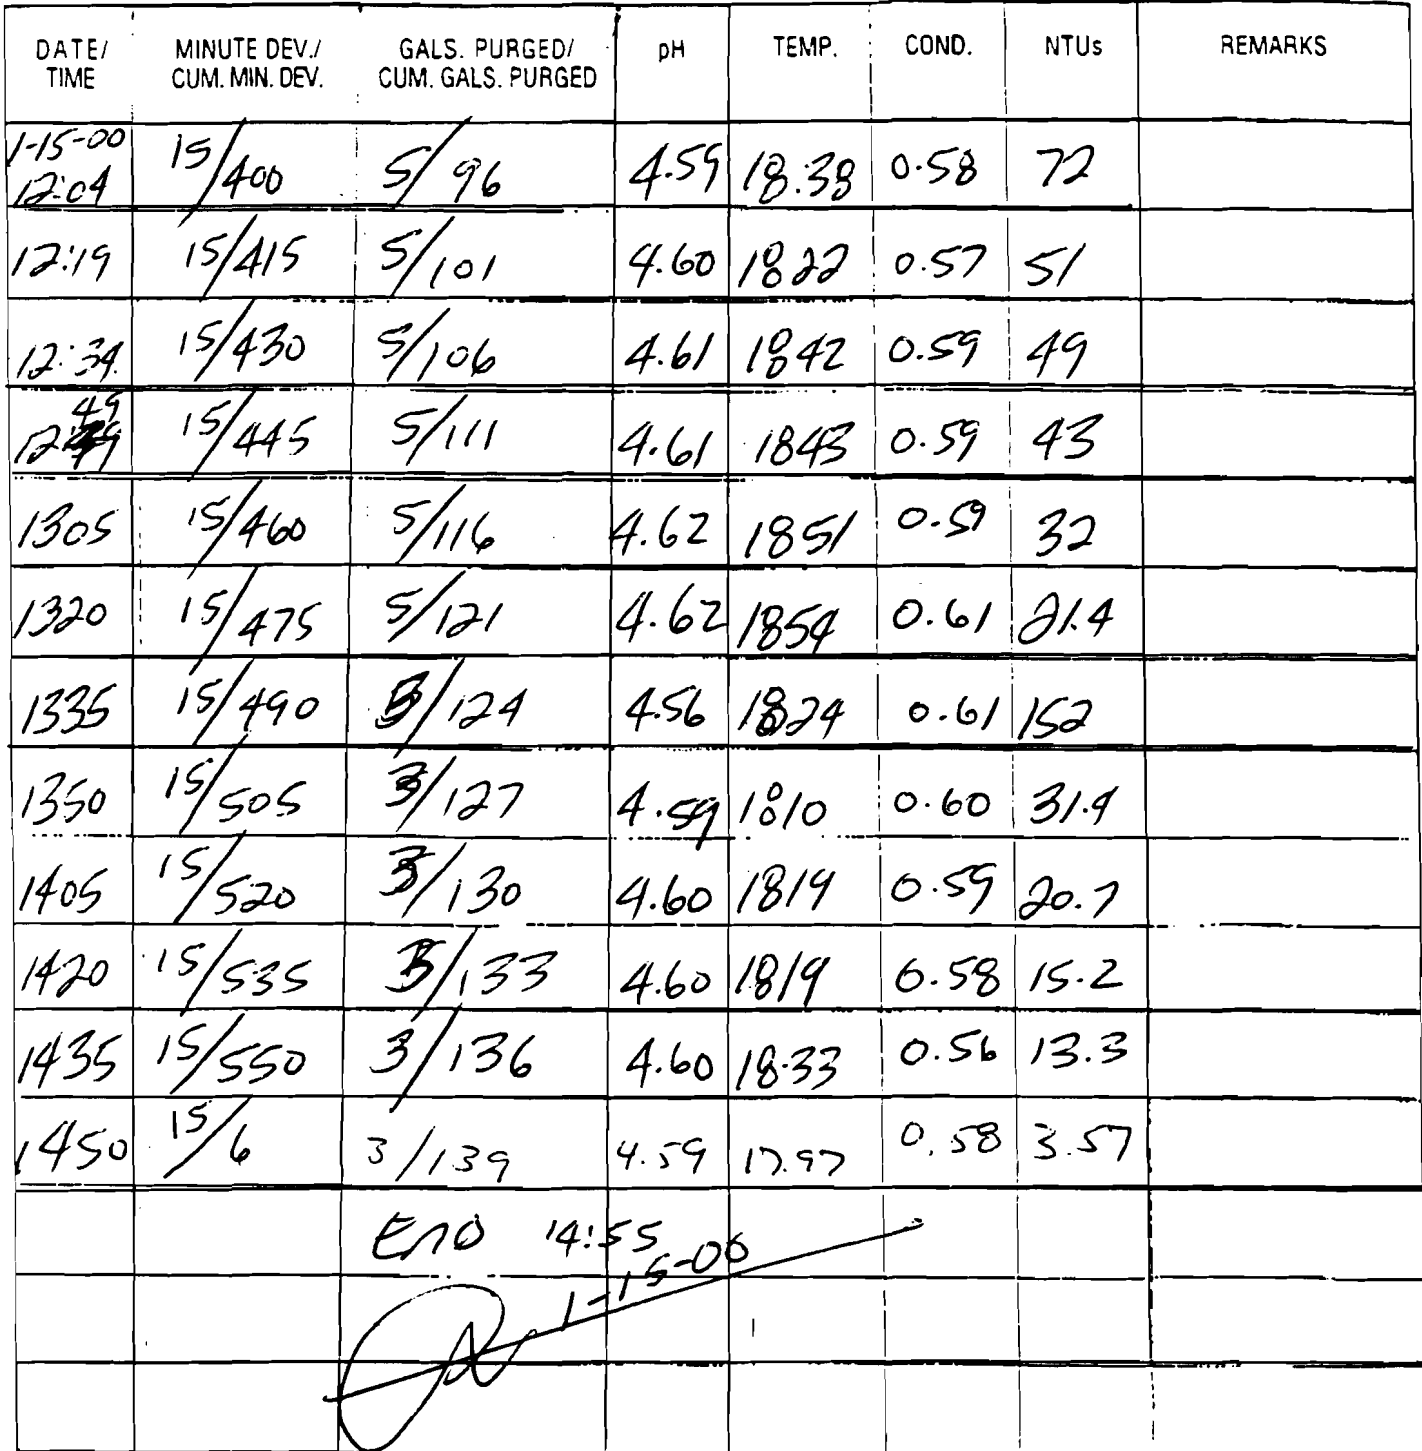 DATE/ TIME MINUTE DEV./ CUM. MIN. DEV. GALS. PURGED/ CUM. GALS. PURGED pH TEMP. COND. NTUs REMARKS
1-15-00
12:04 15/400 5/96 4.59 18.38 0.58 72
12:19 15/415 5/101 4.60 1822 0.57 51
12:34 15/430 5/106 4.61 1842 0.59 49
1249 15/445 5/111 4.61 1843 0.59 43
1305 15/460 5/116 4.62 1851 0.59 32
1320 15/475 5/121 4.62 1854 0.61 21.4
1335 15/490 3/124 4.56 1824 0.61 152
1350 15/505 3/127 4.59 1810 0.60 31.4
1405 15/520 3/130 4.60 1819 0.59 20.7
1420 15/535 3/133 4.60 1819 0.58 15.2
1435 15/550 3/136 4.60 18.33 0.56 13.3
1450 15/6 3/139 4.59 17.97 0.58 3.57
END 14:55
1-15-00